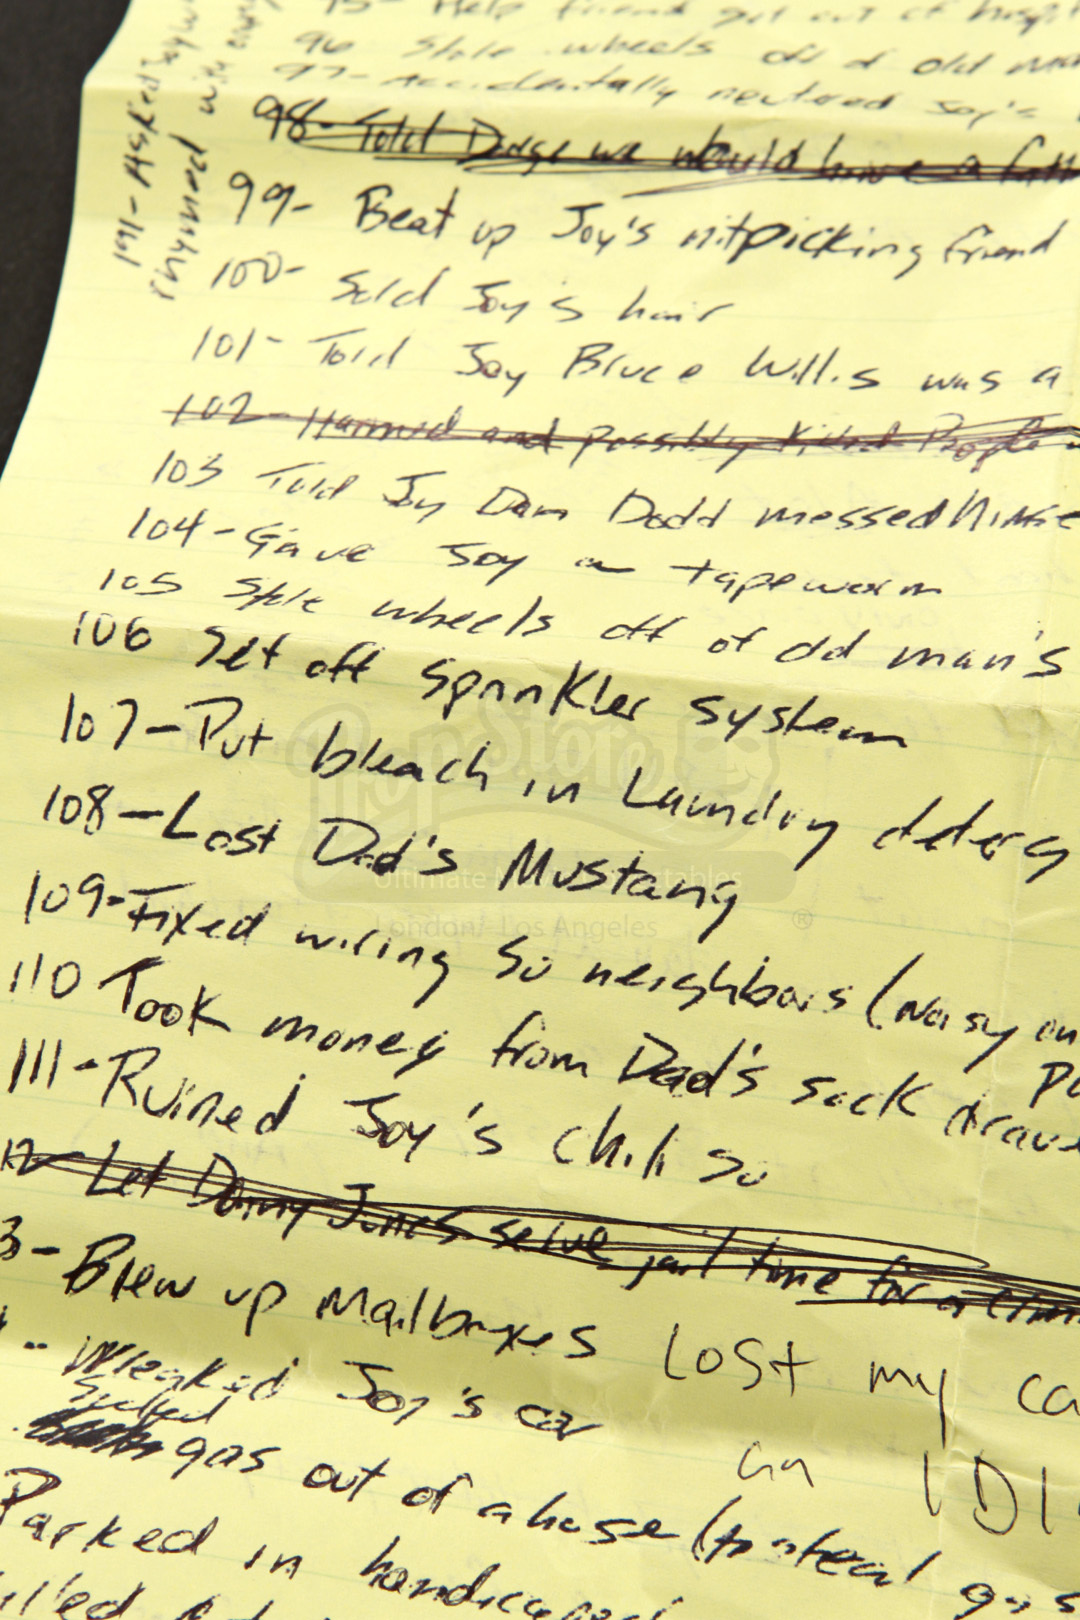 95- Help friend get out of hospi
96 Stole wheels off of old ma
97- Accidentally neutered Joy's
98- Told Dodge we would have a fath
99- Beat up Joy's nitpicking friend
100- Sold Joy's hair
101- Told Joy Bruce Willis was a
102- Harmed and possibly killed People
103 Told Joy Dan Dodd messed
104- Gave Joy a tapeworm
105 Stole wheels off of old man's
106 Set off sprinkler system
107- Put bleach in Laundry deterg
108- Lost Dad's Mustang
109- Fixed wiring so neighbors (noisy on
110 Took money from Dad's sock drawe
111- Ruined Joy's chili so
12 Let Donny Jones serve jail time for a crim
3- Blew up Mailboxes
Lost my ca
- Wreaked Joy's car
an IDI
Sucked gas out of a hose (to steal gas
Parked in handicapped
191- Asked
rhymed with
PopStore
Ultimate M ctables
London/ Los Angeles
®